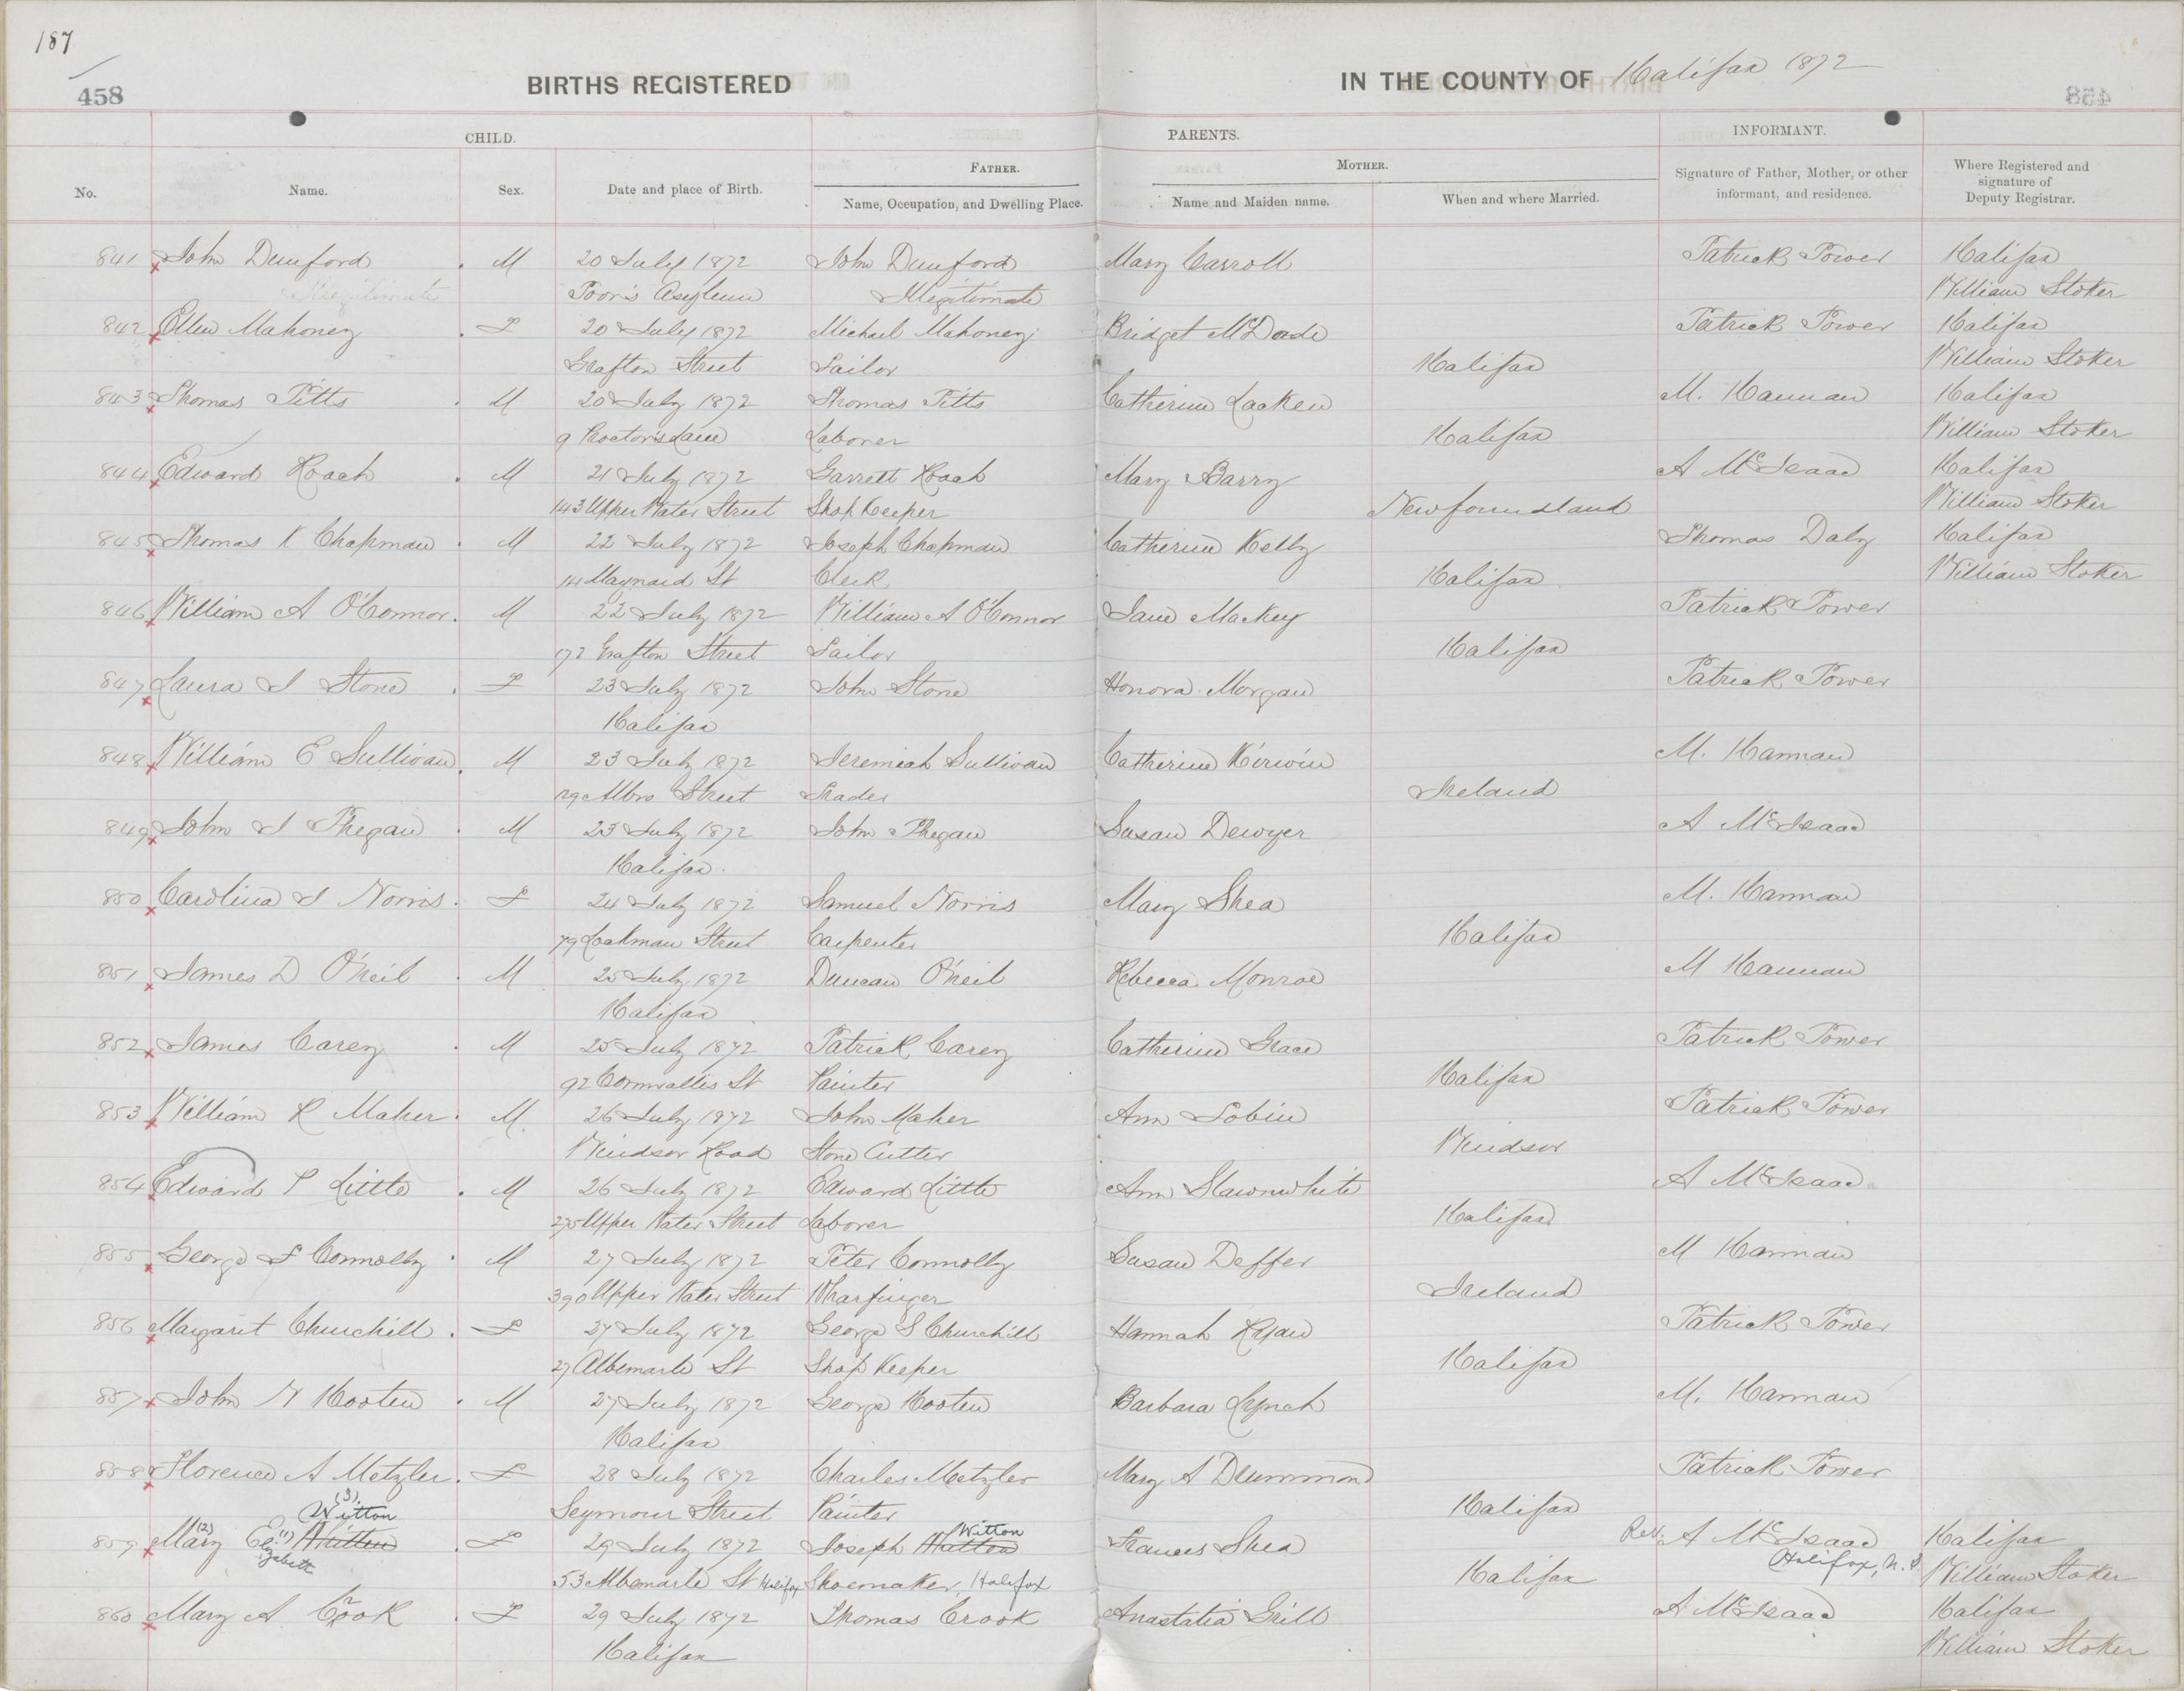 187
458
BIRTHS REGISTERED IN THE COUNTY OF Halifax 1872
458
CHILD. PARENTS. INFORMANT.
FATHER. MOTHER.
No. Name. Sex. Date and place of Birth. Name, Occupation, and Dwelling Place. Name and Maiden name. When and where Married. Signature of Father, Mother, or other informant, and residence. Where Registered and signature of Deputy Registrar.
841 John Dunford . M 20 July 1872 John Dunford Mary Carroll Patrick Power Halifax
Illegitimate Poor's Asylum Illegitimate William Stoker
842 Ellen Mahoney . F 20 July 1872 Michael Mahoney Bridget McDade Patrick Power Halifax
Grafton Street Sailor Halifax William Stoker
843 Thomas Pitts . M 20 July 1872 Thomas Pitts Catherine Lacken M. Hannan Halifax
9 Proctor's Lane Laborer Halifax William Stoker
844 Edward Roach . M 21 July 1872 Garrett Roach Mary Barry A McIsaac Halifax
143 Upper Water Street Shop Keeper Newfoundland William Stoker
845 Thomas K Chapman . M 22 July 1872 Joseph Chapman Catherine Kelly Thomas Daly Halifax
14 Maynard St Clerk Halifax William Stoker
846 William A O'Connor . M 22 July 1872 William A O'Connor Jane Mackey Patrick Power
172 Grafton Street Sailor Halifax
847 Laura J Stone . F 23 July 1872 John Stone Honora Morgan Patrick Power
Halifax
848 William E Sullivan . M 23 July 1872 Jeremiah Sullivan Catherine Kirwin M. Hannan
Albro Street Trader Ireland
849 John J Phegan . M 23 July 1872 John Phegan Susan Dewyer A McIsaac
Halifax.
850 Carolina J Norris . F 24 July 1872 Samuel Norris Mary Shea M. Hannan
79 Lockman Street Carpenter Halifax
851 James D O'neil . M 25 July 1872 Duncan O'neil Rebecca Monroe M Hannan
Halifax
852 James Carey . M 25 July 1872 Patrick Carey Catherine Grace Patrick Power
92 Cornwallis St Painter Halifax
853 William R Maher . M. 26 July 1872 John Maher Ann Tobin Patrick Power
Windsor Road Stone Cutter Windsor
854 Edward P Little . M 26 July 1872 Edward Little Ann Slawnwhite A McIsaac
275 Upper Water Street Laborer Halifax
855 George F Connolly . M 27 July 1872 Peter Connolly Susan Deffer M Hannan
390 Upper Water Street Wharfinger Ireland
856 Margaret Churchill . F 27 July 1872 George S Churchill Hannah Ryan Patrick Power
27 Albemarle St Shop Keeper Halifax
857 John N Hooten . M 27 July 1872 George Hooten Barbara Lynch M. Hannan
Halifax
858 Florence A Metzler . F 28 July 1872 Charles Metzler Mary A Drummond Patrick Power
Seymour Street Painter Halifax
(3) Witton Witton
859 Mary (2) Eliz (1) . F 29 July 1872 Joseph Frances Shea Rev. A McIsaac Halifax
zabeth 53 Albemarle St Halifax Shoemaker, Halifax Halifax Halifax, N. S. William Stoker
860 Mary A Crook . F 29 July 1872 Thomas Crook Anastatia Grill A McIsaac Halifax
Halifax William Stoker